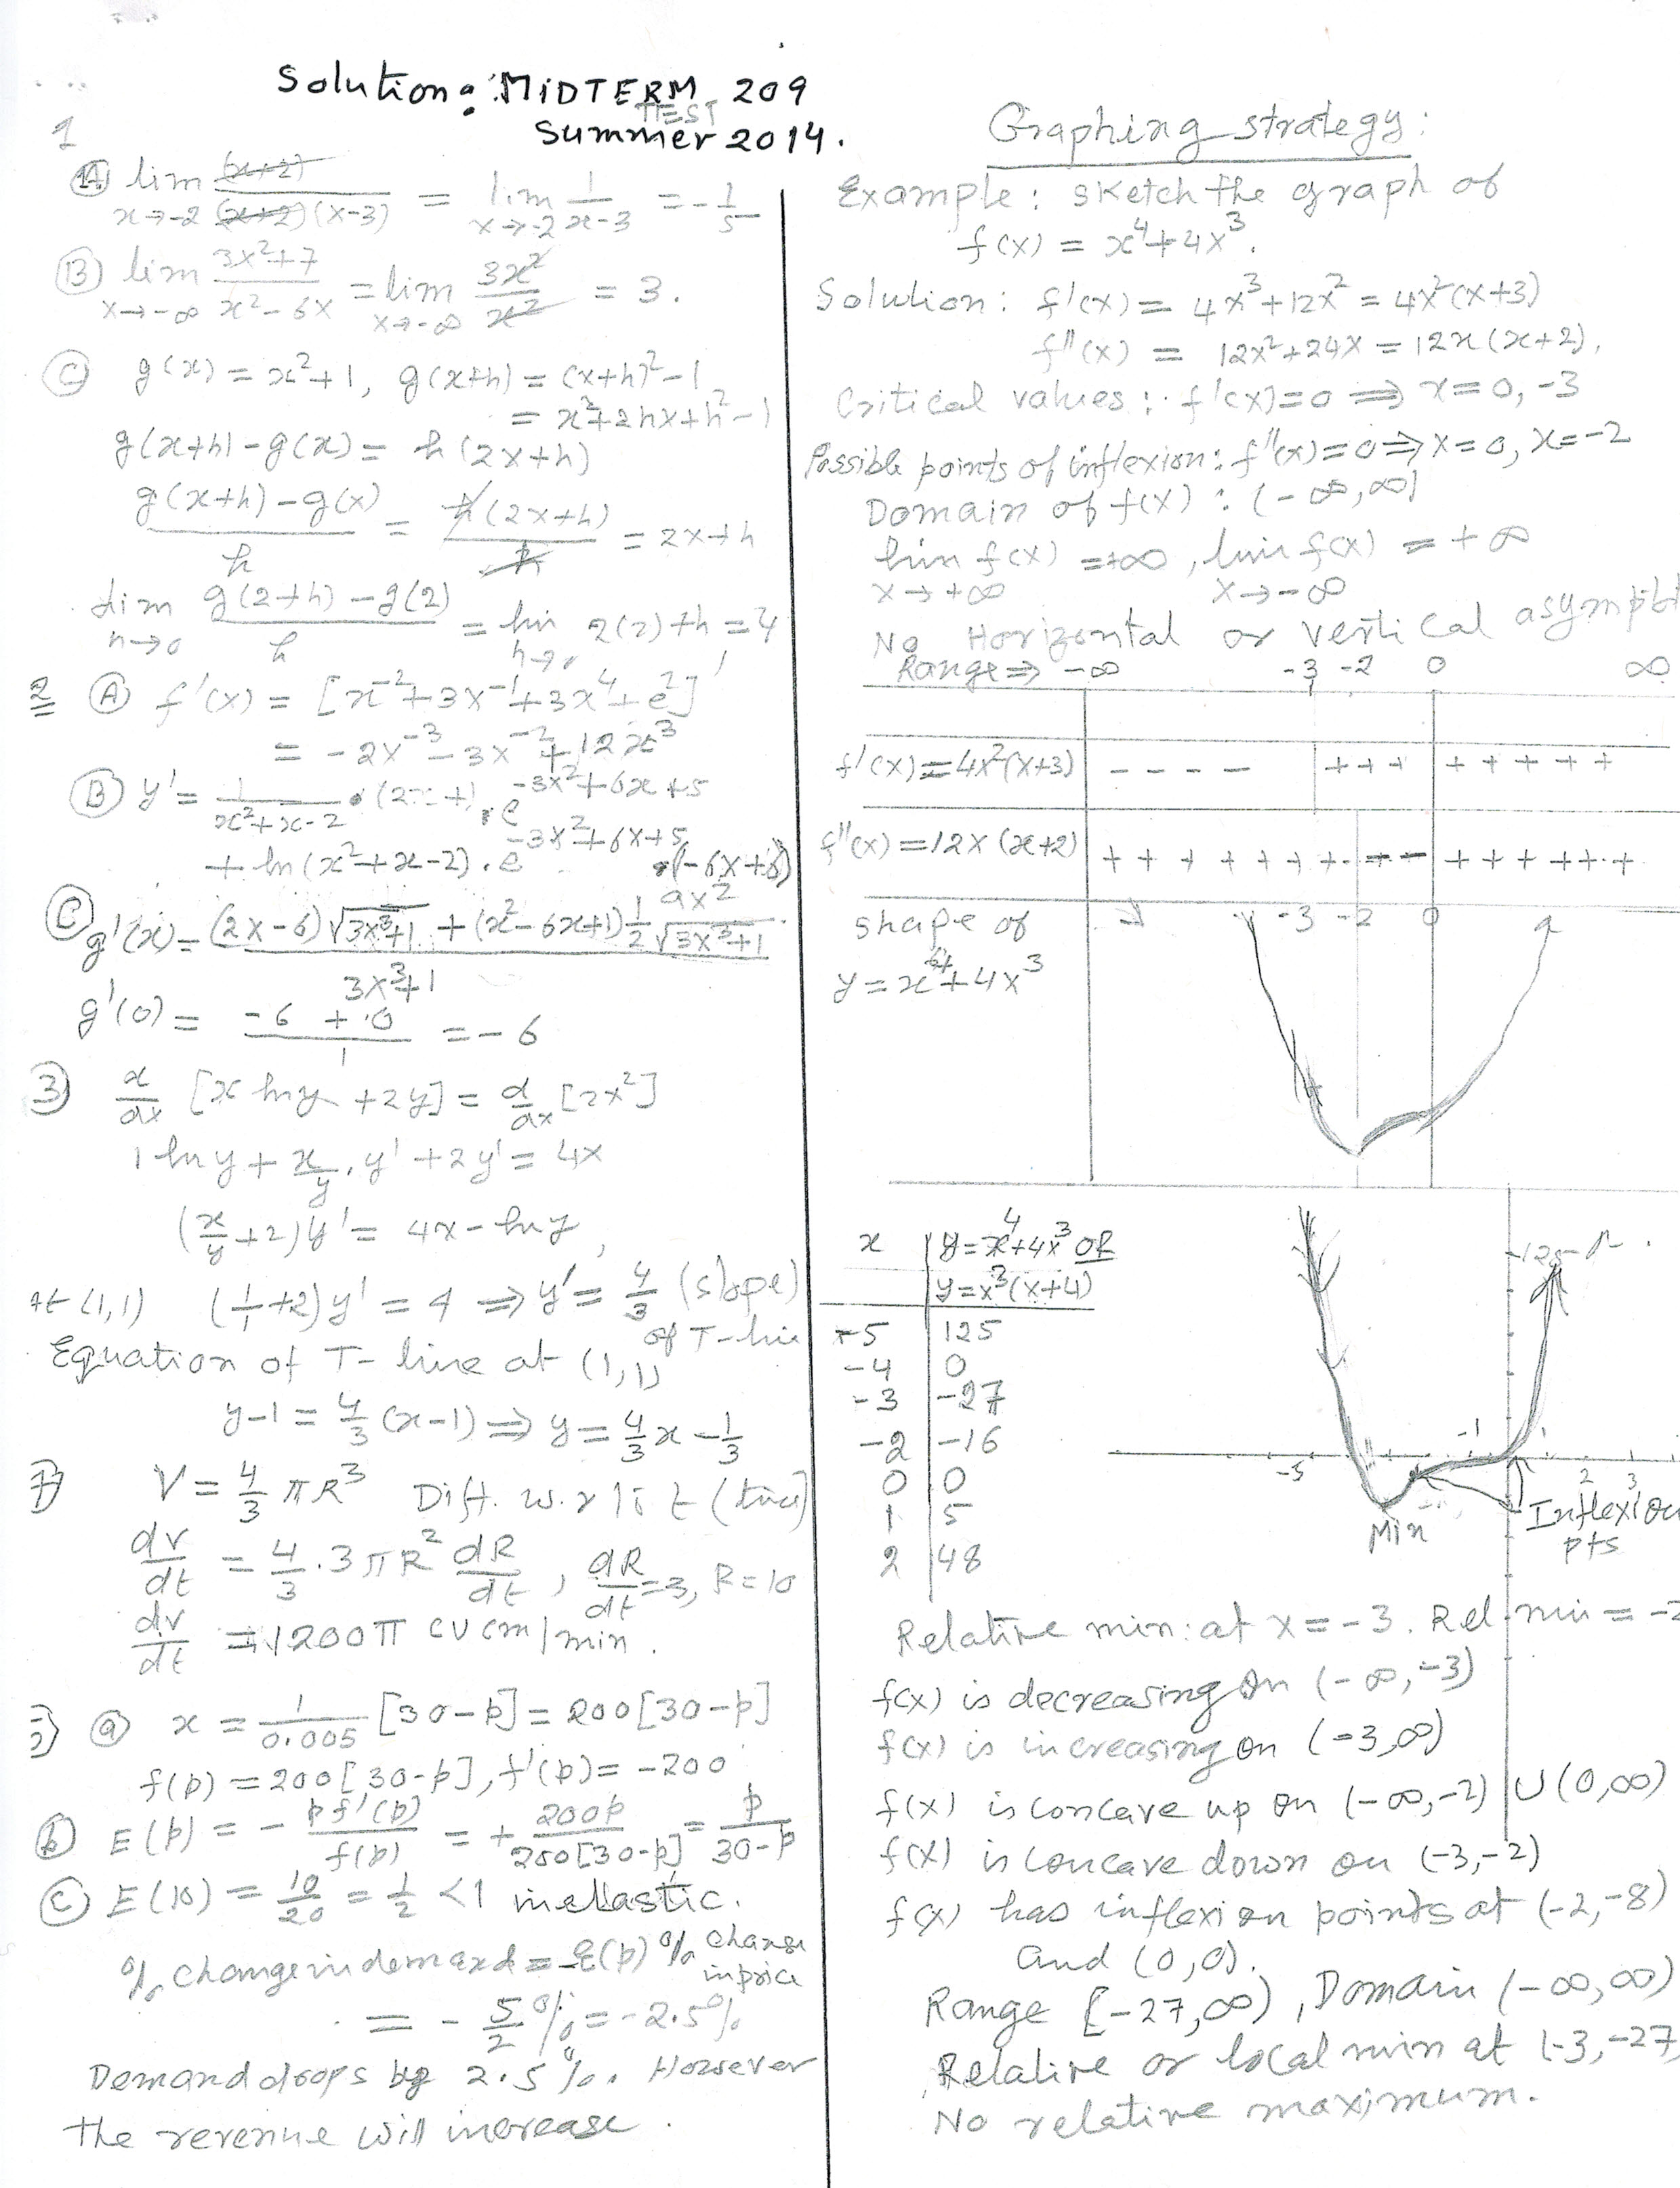 Solution: MIDTERM 209
TEST
Summer 2014.
1
(A) lim x→-2 (x+2)/((x+2)(x-3)) = lim x→-2 1/(x-3) = -1/5
(B) lim x→-∞ (3x²+7)/(x²-6x) = lim x→-∞ 3x²/x² = 3.
(C) g(x) = x²+1, g(x+h) = (x+h)²-1
= x²+2hx+h²-1
g(x+h)-g(x) = h(2x+h)
(g(x+h)-g(x))/h = h(2x+h)/h = 2x+h
lim h→0 (g(2+h)-g(2))/h = lim h→0 2(2)+h = 4
2 (A) f'(x) = [x⁻²+3x⁻¹+3x⁴+e²]'
= -2x⁻³-3x⁻²+12x³
(B) y' = 1/(x²+x-2) · (2x+1) · e^(-3x²+6x+5)
+ ln(x²+x-2) · e^(-3x²+6x+5) · (-6x+6)
(C) g'(x) = ((2x-6)√(3x³+1) + (x²-6x+1) 1/2 9x²/√(3x³+1))/(3x³+1)
g'(0) = (-6+0)/1 = -6
3) d/dx [x ln y + 2y] = d/dx [2x²]
1 ln y + x/y · y' + 2y' = 4x
(x/y+2)y' = 4x - ln y,
At (1,1) (1/1+2)y' = 4 ⇒ y' = 4/3 (slope)
of T-line
Equation of T-line at (1,1)
y-1 = 4/3 (x-1) ⇒ y = 4/3 x - 1/3
V = 4/3 πR³ Diff. w.r to t (time)
dv/dt = 4/3 · 3πR² dR/dt, dR/dt = 3, R=10
dv/dt = 1200π cu cm/min.
(a) x = 1/0.005 [30-p] = 200[30-p]
f(p) = 200[30-p], f'(p) = -200
(b) E(p) = - p f'(p)/f(p) = + 200p/200[30-p] = p/(30-p)
(c) E(10) = 10/20 = 1/2 < 1 inelastic.
% change in demand = -E(p) % change in price
= - 5/2 % = -2.5%
Demand drops by 2.5%. However
the revenue will increase.
Graphing strategy:
Example: sketch the graph of
f(x) = x⁴+4x³.
Solution: f'(x) = 4x³+12x² = 4x²(x+3)
f''(x) = 12x²+24x = 12x(x+2).
Critical values: f'(x)=0 ⇒ x=0, -3
Possible points of inflexion: f''(x)=0 ⇒ x=0, x=-2
Domain of f(x): (-∞,∞)
lim x→+∞ f(x) = +∞, lim x→-∞ f(x) = +∞
No Horizontal or vertical
Range ⇒ -∞ -3 -2 0 ∞
f'(x) = 4x²(x+3) - - - - + + + + + + + +
f''(x) = 12x(x+2) + + + + + + + - - - + + + + + + +
shape of -3 -2 0
y = x⁴+4x³
x y = x⁴+4x³ OR
y = x³(x+4)
-5 125
-4 0
-3 -27
-2 -16
0 0
1 5
2 48
125
-5 -1 2 3
Min
Inflexion
pts
Relative min: at x = -3. Rel. min =
f(x) is decreasing on (-∞,-3)
f(x) is increasing on (-3,∞)
f(x) is concave up on (-∞,-2) ∪ (0,∞)
f(x) is concave down on (-3,-2)
f(x) has inflexion points at (-2,-8)
and (0,0).
Range [-27,∞), Domain (-∞,∞)
Relative or local min at (-3,-27
No relative maximum.